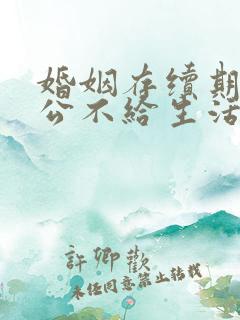 婚姻存续期
公不给生活
許卿歡
未经同意禁止转载